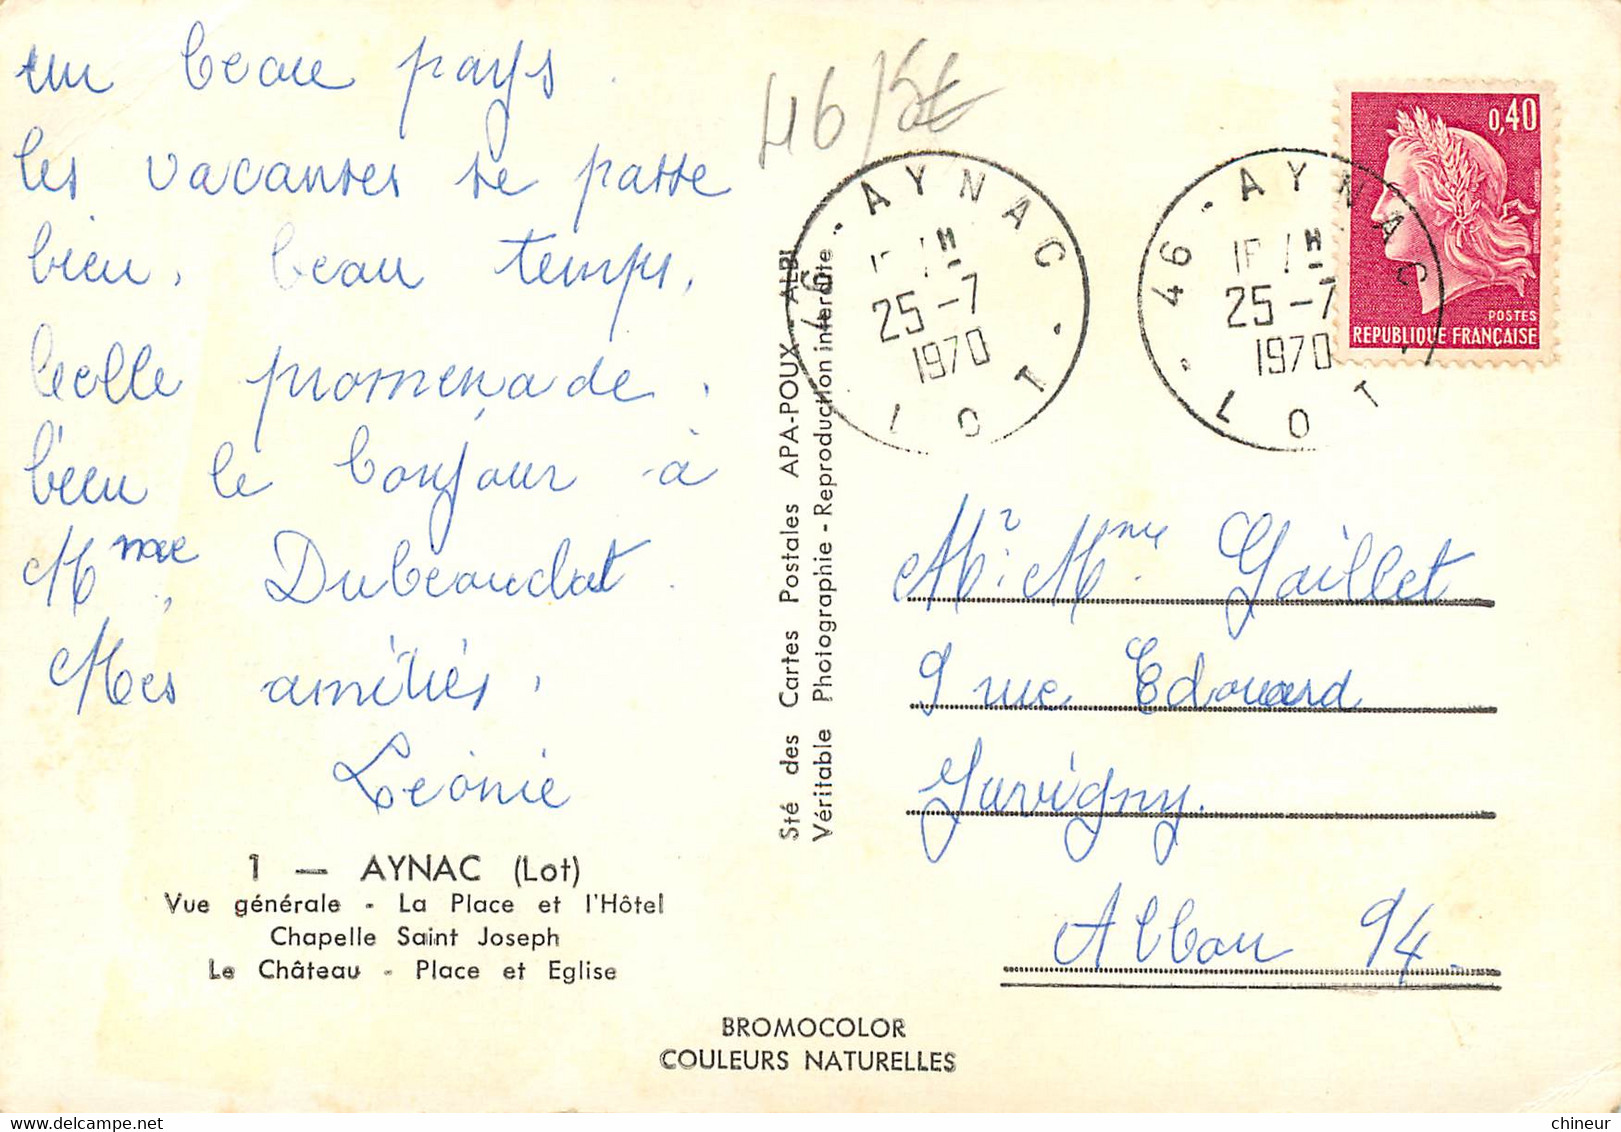 un beau pays.
les vacances se passe
bien. beau temps,
belle promenade.
bien le bonjour à
Mme Dubeaudat.
Mes amitiés,
Léonie
1 — AYNAC (Lot)
Vue générale - La Place et l'Hôtel
Chapelle Saint Joseph
Le Château - Place et Eglise
BROMOCOLOR
COULEURS NATURELLES
Sté des Cartes Postales APA-POUX - ALBI
Véritable Photographie - Reproduction interdite
46/5€
46 - AYNAC
25-7
1970
LOT
46 - AYNAC
25-7
1970
LOT
0,40
POSTES
REPUBLIQUE FRANÇAISE
Mr. Mme Gaillet
9 rue Edouard
Juvigny.
94.
chineur